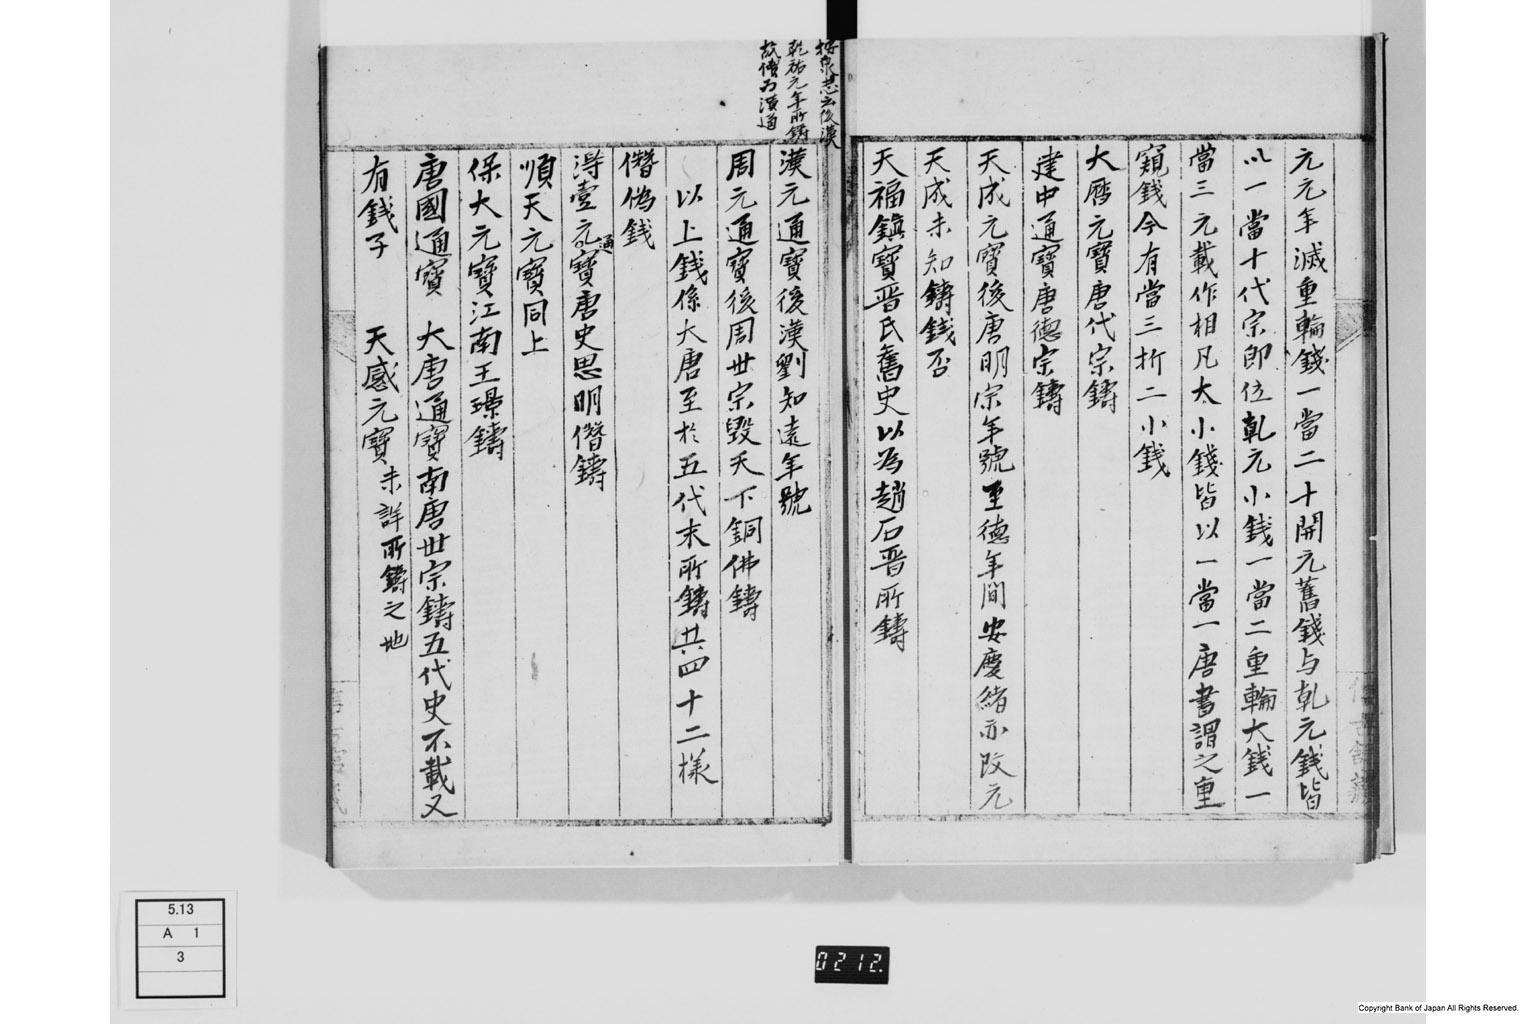 元元年滅重輪錢一當二十開元舊錢与乹元錢皆
以一當十代宗即位乹元小錢一當二重輪大錢一
當三元載作相凡大小錢皆以一當一唐書謂之重
窺錢今有當三折二小錢
大曆元寳唐代宗鑄
建中通寳唐德宗鑄
天成元寳後唐明宗年號至德年間安慶緒亦改元
天成未知鑄錢否
天福鎮寳晋氏舊史以為趙石晋所鑄
按泉志云後漢
乾祐元年所鑄
漢元通寳後漢劉知遠年號
周元通寳後周世宗毀天下銅佛鑄
以上錢係大唐至於五代末所鑄共四十二樣
僭偽錢
淂壹元通寳唐史思明僭鑄
順天元寳同上
保大元寳江南王璟鑄
唐國通寳 大唐通寳南唐世宗鑄五代史不載又
有錢子 天感元寳未詳所鑄之地
5.13
A 1
3
0212.
Copyright Bank of Japan All Rights Reserved.